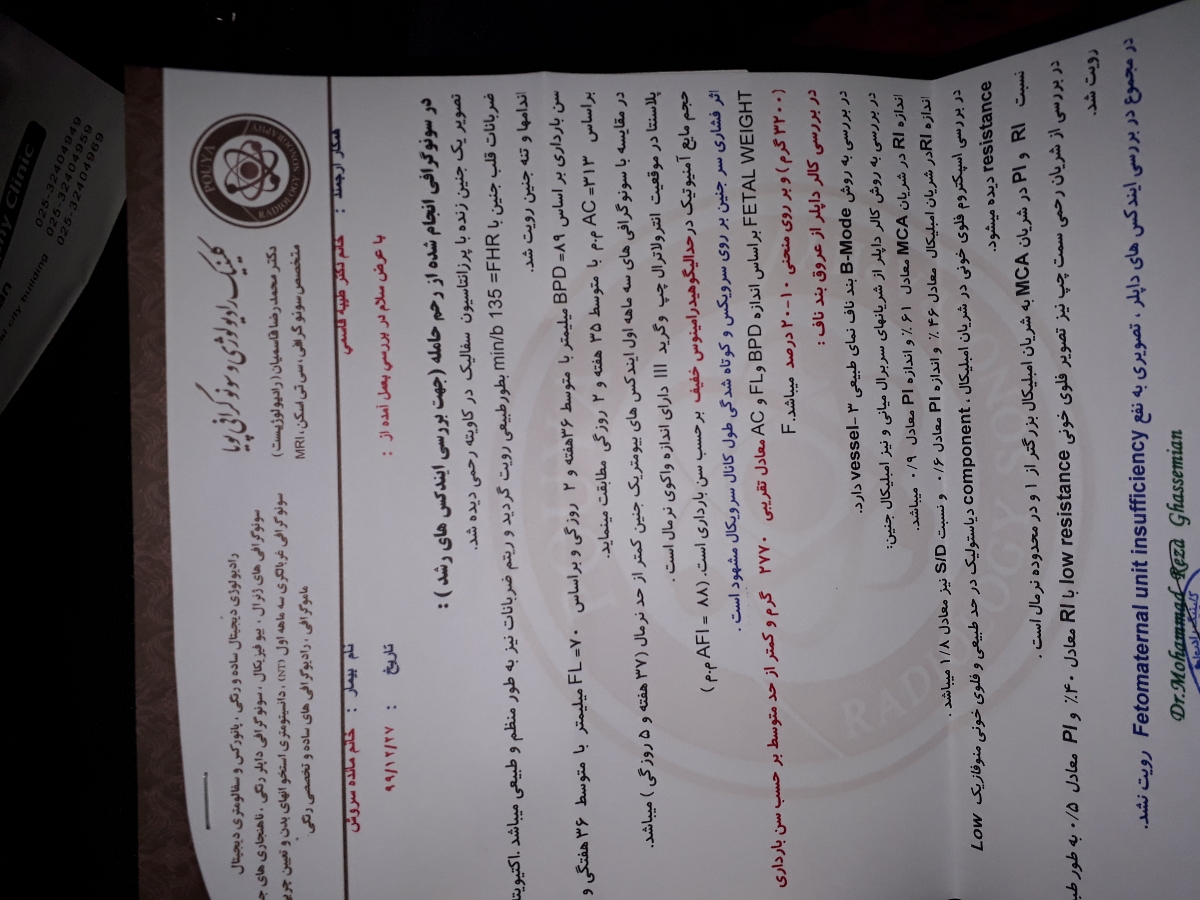 کلینیک رادیولوژی و سونوگرافی پویا
POUYA
RADIOLOGY SONOGRAPHY
دکتر محمد رضا قاسمیان (رادیولوژیست)
متخصص سونوگرافی، سی تی اسکن، MRI
رادیولوژی دیجیتال ساده و رنگی ، پانورکس و سفالومتری دیجیتال
سونوگرافی های ژنرال ، بیوفیزیکال ، سونوگرافی داپلر رنگی ، ناهنجاری های
سونوگرافی غربالگری سه ماهه اول (NT) ، دانسیتومتری استخوانهای بدن و تعیین
ماموگرافی ، رادیوگرافی های ساده و تخصصی رنگی
همکار ارجمند : خانم دکتر طیبه قاسمی
نام بیمار : خانم مائده سروش
با عرض سلام در بررسی بعمل آمده از :
تاریخ : ۹۹/۱۲/۲۷
در سونوگرافی انجام شده از رحم حامله (جهت بررسی ایندکس های رشد) :
تصویر یک جنین زنده با پرزانتاسیون سفالیک در کاویته رحمی دیده شد.
ضربانات قلب جنین با FHR= 135 min/b بطورطبیعی رویت گردید و ریتم ضربانات نیز به طور منظم و طبیعی میباشد .اکتیویتی
اندامها و تنه جنین رویت شد.
سن بارداری بر اساس BPD =۸۹ میلیمتر با متوسط ۳۶هفته و ۲ روزگی و براساس FL =۷۰ میلیمتر با متوسط ۳۶ هفتگی و
براساس AC =۳۱۳ م.م با متوسط ۳۵ هفته و ۲ روزگی مطابقت مینماید.
در مقایسه با سونوگرافی های سه ماهه اول ایندکس های بیومتریک جنین کمتر از حد نرمال (۳۷ هفته و ۵ روزگی ) میباشد.
پلاسنتا در موقعیت آنترولاترال چپ وگرید III دارای اندازه واکوی نرمال است .
حجم مایع آمنیوتیک در حدالیگوهیدرامینوس خفیف بر حسب سن بارداری است. (AFI = ۸۸ م.م )
اثر فشاری سر جنین بر روی سرویکس و کوتاه شدگی طول کانال سرویکال مشهود است .
FETAL WEIGHT براساس اندازه BPD وFL و AC معادل تقریبی ۲۷۷۰ گرم و کمتر از حد متوسط بر حسب سن بارداری
(۳۲۰۰ گرم ) و بر روی منحنی ۱۰-۲۰ درصد میباشد.F
در بررسی کالر داپلر از عروق بند ناف :
در بررسی به روش B-Mode بند ناف نمای طبیعی ۳-vessel دارد.
در بررسی به روش کالر داپلر از شریانهای سربرال میانی و نیز امبلیکال جنین:
اندازه RI در شریان MCA معادل ۶۱٪ و اندازه PI معادل ۰/۹ میباشد.
اندازه RIدر شریان امبلیکال معادل ۴۶٪ و اندازه PI معادل ۰/۶ و نسبت S/D نیز معادل ۱/۸ میباشد .
در بررسی اسپکتروم فلوی خونی در شریان امبلیکال ، component دیاستولیک در حد طبیعی و فلوی خونی منوفازیک Low
resistance دیده میشود.
نسبت RI و PI در شریان MCA به شریان امبلیکال بزرگتر از ۱ و در محدوده نرمال است .
در بررسی از شریان رحمی سمت چپ نیز تصویر فلوی خونی low resistance با RI معادل ۴۰٪ و PI معادل ۰/۵ به طور
رویت شد.
در مجموع در بررسی ایندکس های داپلر ، تصویری به نفع Fetomaternal unit insufficiency رویت نشد.
Dr.Mohammad Reza Ghassemian
Clinic
025-32404949
025-32404959
025-32404969
city building